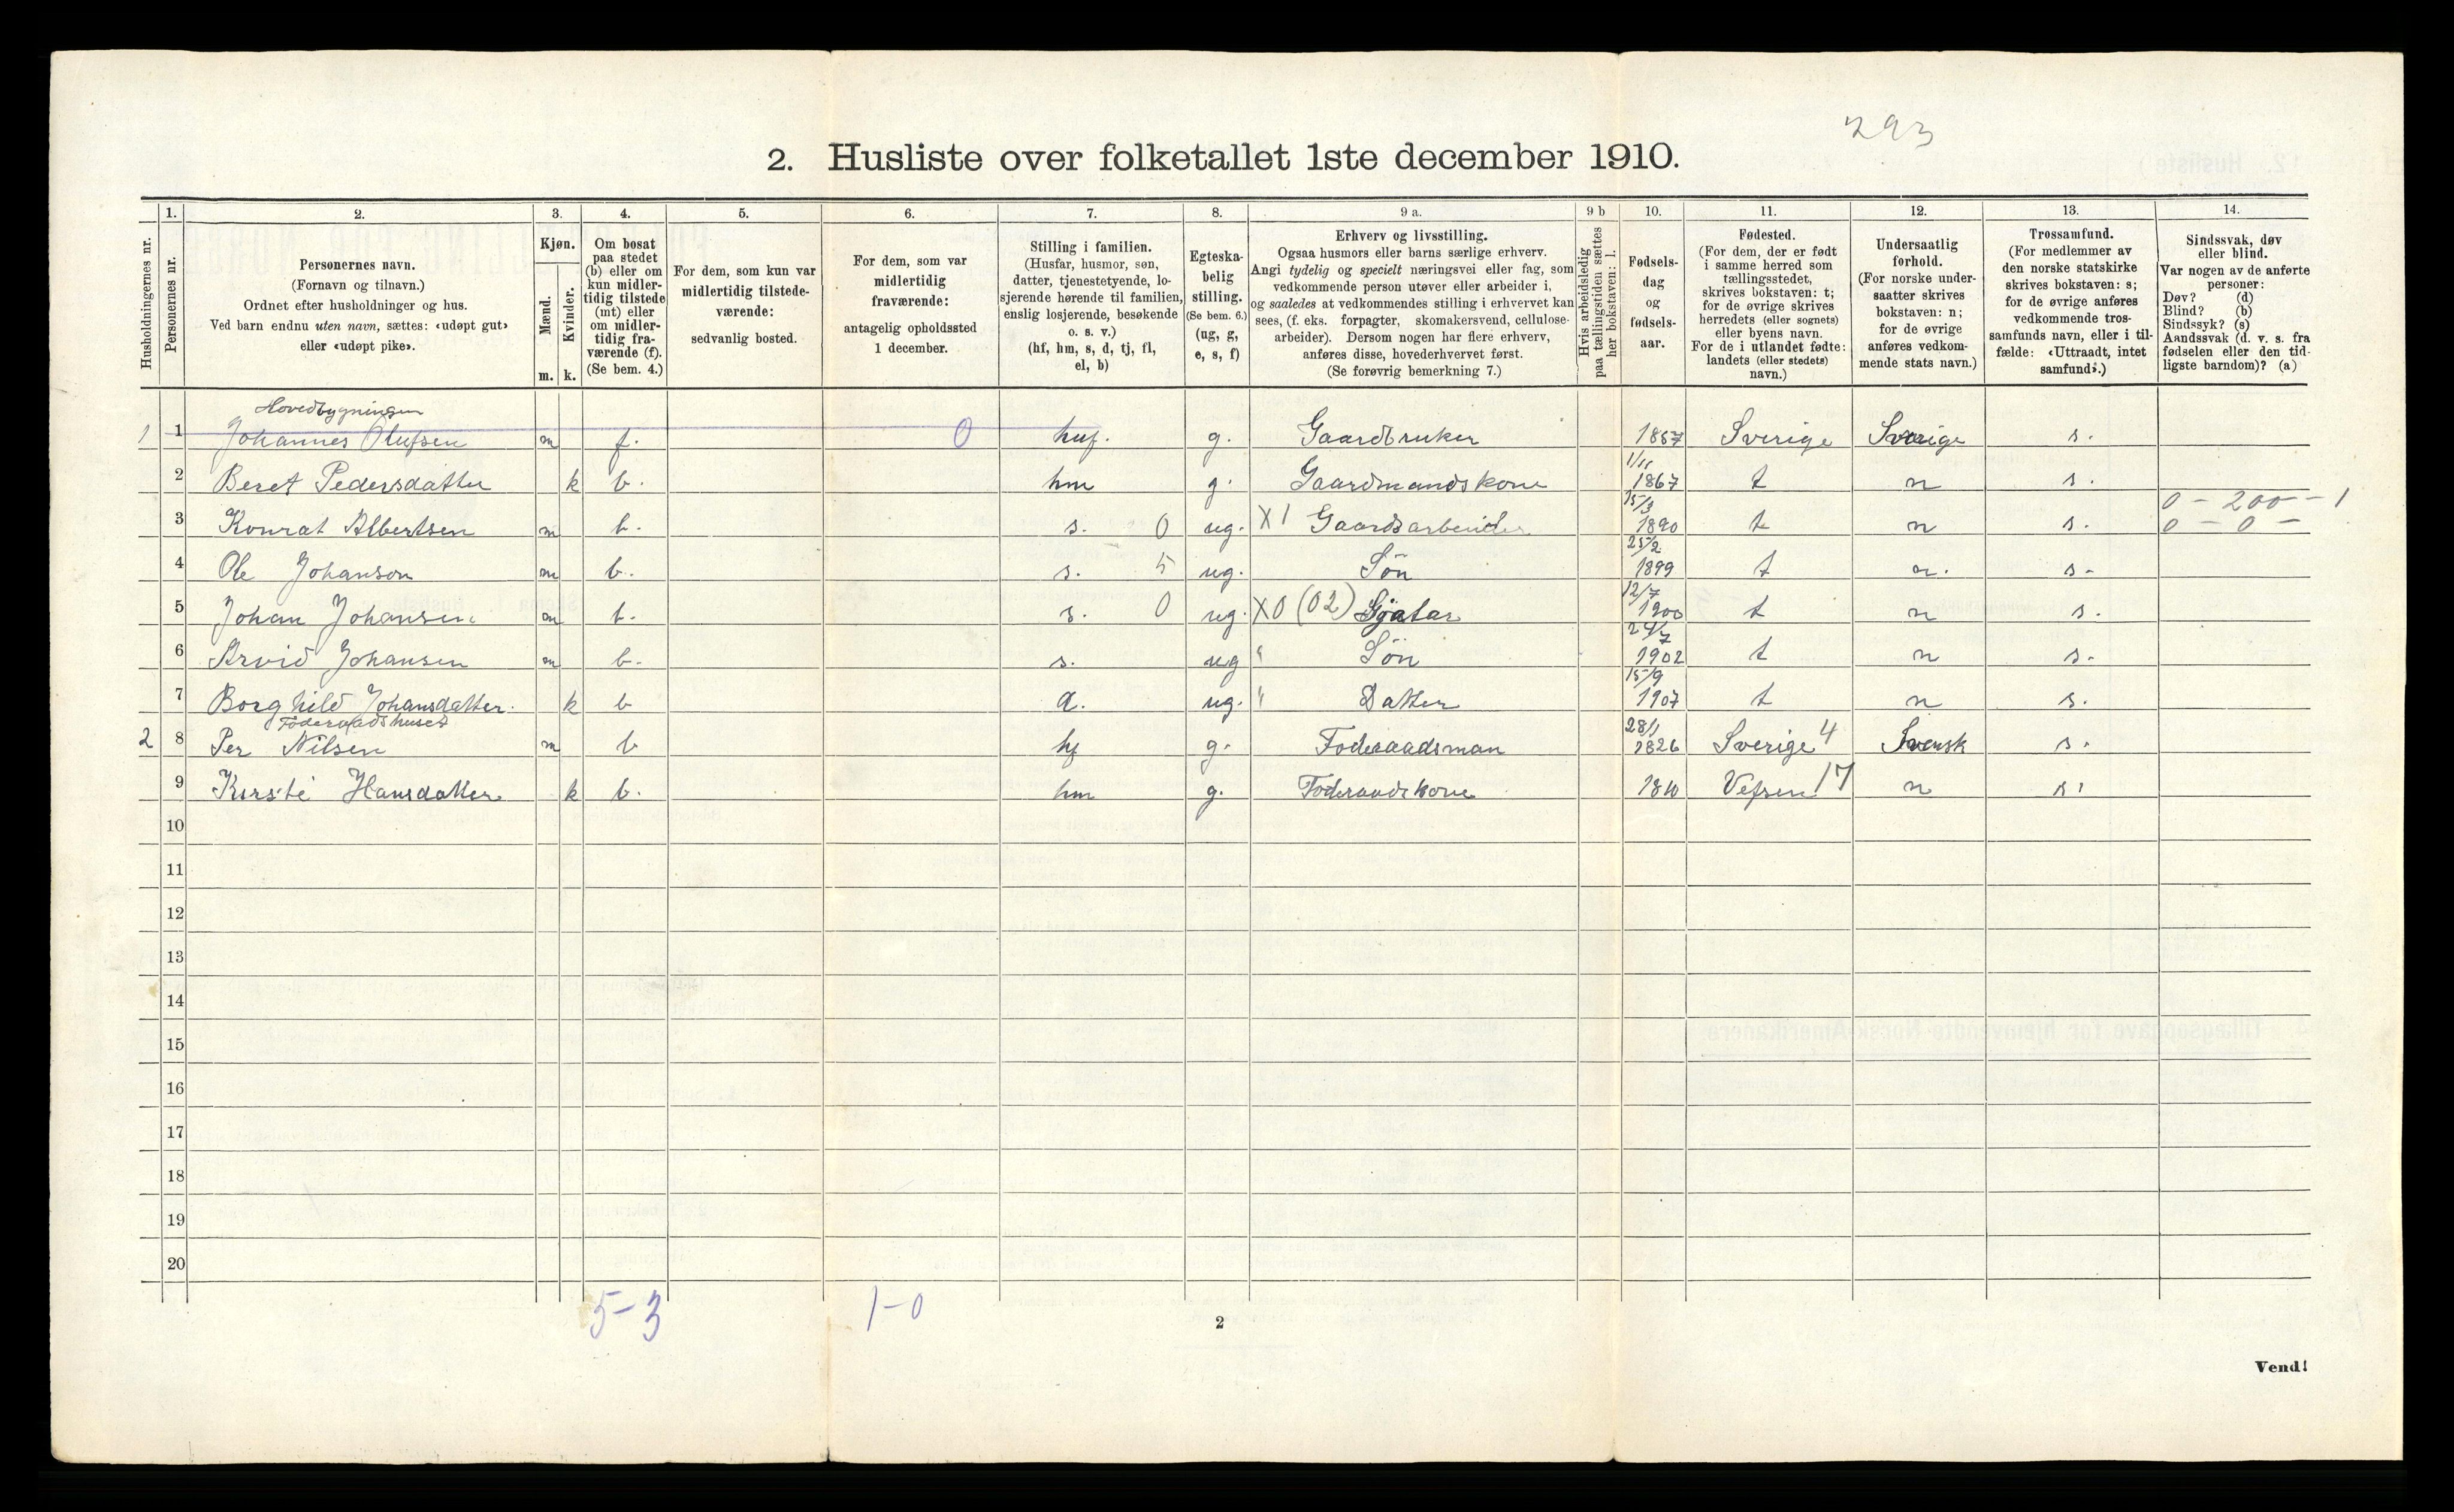 293
2. Husliste over folketallet 1ste december 1910.
Husholdningernes nr.
1. Personernes nr.
2. Personernes navn.
(Fornavn og tilnavn.)
Ordnet efter husholdninger og hus.
Ved barn endnu uten navn, sættes: «udøpt gut»
eller «udøpt pike».
3. Kjøn.
Mænd. m.
Kvinder. k.
4. Om bosat
paa stedet
(b) eller om
kun midler-
tidig tilstede
(mt) eller
om midler-
tidig fra-
værende (f).
(Se bem. 4.)
5. For dem, som kun var
midlertidig tilstede-
værende:
sedvanlig bosted.
6. For dem, som var
midlertidig
fraværende:
antagelig opholdssted
1 december.
7. Stilling i familien.
(Husfar, husmor, søn,
datter, tjenestetyende, lo-
sjerende hørende til familien,
enslig losjerende, besøkende
o. s. v.)
(hf, hm, s, d, tj, fl,
el, b)
8. Egteska-
belig
stilling.
(Se bem. 6.)
(ug, g,
e, s, f)
9 a. Erhverv og livsstilling.
Ogsaa husmors eller barns særlige erhverv.
Angi tydelig og specielt næringsvei eller fag, som
vedkommende person utøver eller arbeider i,
og saaledes at vedkommendes stilling i erhvervet kan
sees, (f. eks. forpagter, skomakersvend, cellulose-
arbeider). Dersom nogen har flere erhverv,
anføres disse, hovederhvervet først.
(Se forøvrig bemerkning 7.)
9 b Hvis arbeidsledig
paa tællingstiden sættes
her bokstaven: l.
10. Fødsels-
dag
og
fødsels-
aar.
11. Fødested.
(For dem, der er født
i samme herred som
tællingsstedet,
skrives bokstaven: t;
for de øvrige skrives
herredets (eller sognets)
eller byens navn.
For de i utlandet fødte:
landets (eller stedets)
navn.)
12. Undersaatlig
forhold.
(For norske under-
saatter skrives
bokstaven: n;
for de øvrige
anføres vedkom-
mende stats navn.)
13. Trossamfund.
(For medlemmer av
den norske statskirke
skrives bokstaven: s;
for de øvrige anføres
vedkommende tros-
samfunds navn, eller i til-
fælde: «Uttraadt, intet
samfund».)
14. Sindssvak, døv
eller blind.
Var nogen av de anførte
personer:
Døv? (d)
Blind? (b)
Sindssyk? (s)
Aandssvak (d. v. s. fra
fødselen eller den tid-
ligste barndom)? (a)
Hovedbygningen
1 1 Johannes Olufsen m f. 0 huf. g. Gaardbruker 1857 Sverige Sverige s.
2 Beret Pedersdatter k b. hm g. Gaardmandskone 1/11 1867 t n s.
0 - 200 - 1
3 Konrat Albertsen m b. s. 0 ug. X1 Gaardsarbeider 15/3 1890 t n s. 0 - 0 -
4 Ole Johanson m b. s. 5 ug. Søn 25/2 1899 t n. s.
5 Johan Johansen m b. s. 0 ug. X0 (02) Gjætar 12/7 1900 t n s.
6 Arvid Johansen m b. s. ug " Søn 24/7 1902 t n s.
7 Borghild Johansdatter. k b d. ug. " Datter 15/9 1907 t n s.
Föderaadshuset
2 8 Per Nilsen m b hf g. Foderaadsman 28/1 1826 Sverige 4 Svensk s.
9 Kirsti Hansdatter k b. hm g. Foderaadskone Vefsen 17 n s.
10
11
12
13
14
15
16
17
18
19
20
5-3
1-0
2
Vend!